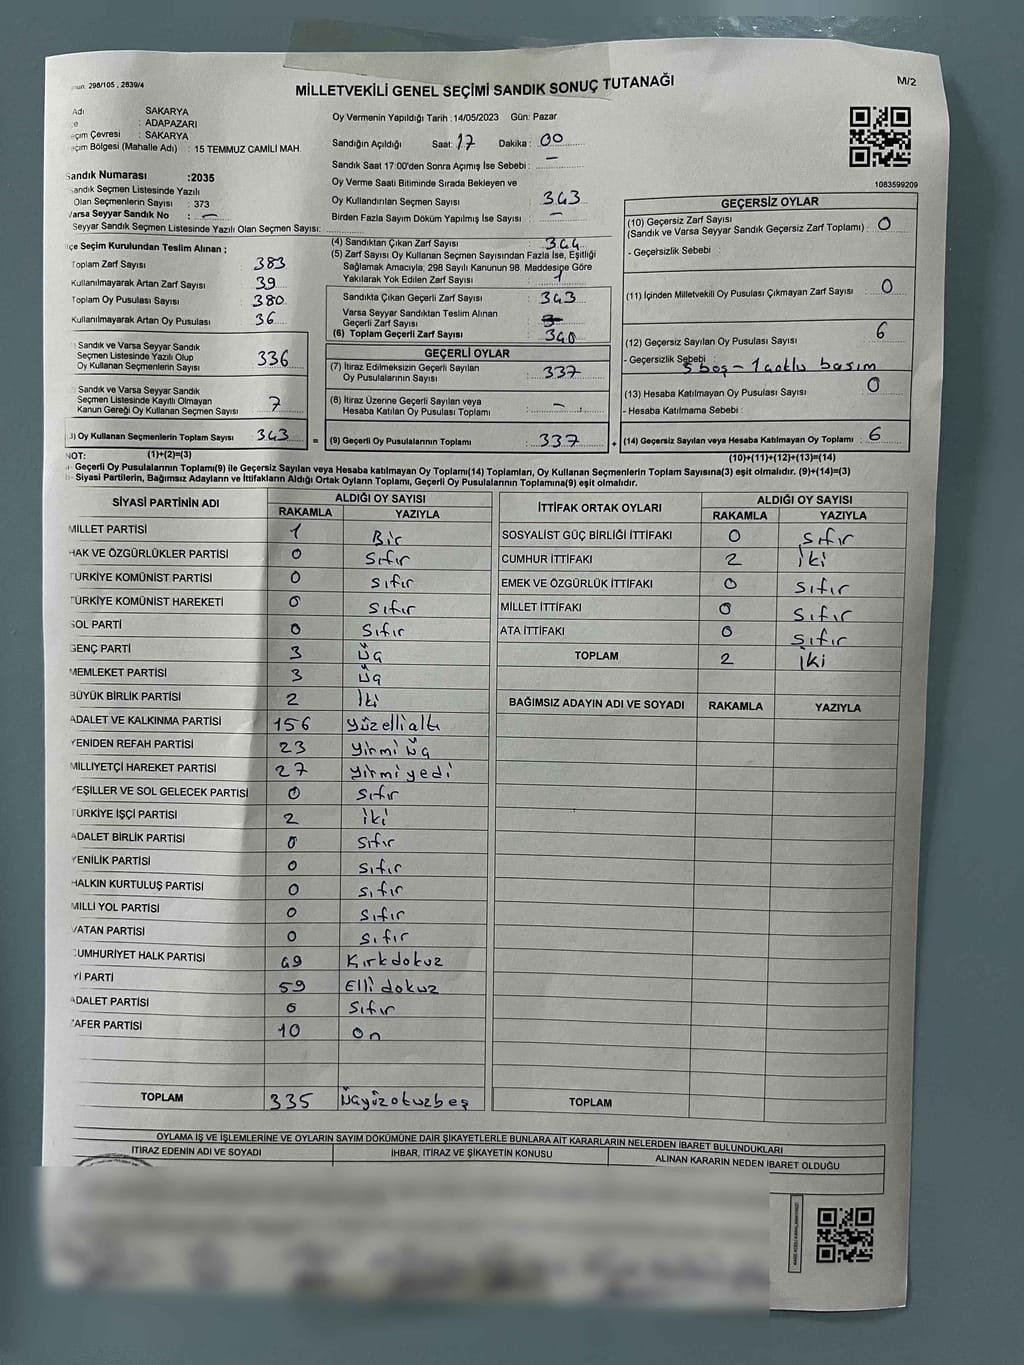 298/105 , 2839/4
MİLLETVEKİLİ GENEL SEÇİMİ SANDIK SONUÇ TUTANAĞI
M/2
Adı SAKARYA
: ADAPAZARI
Seçim Çevresi : SAKARYA
Seçim Bölgesi (Mahalle Adı) : 15 TEMMUZ CAMİLİ MAH.
Sandık Numarası :2035
Sandık Seçmen Listesinde Yazılı
Olan Seçmenlerin Sayısı : 373
Varsa Seyyar Sandık No : -
Seyyar Sandık Seçmen Listesinde Yazılı Olan Seçmen Sayısı:
Oy Vermenin Yapıldığı Tarih :14/05/2023 Gün: Pazar
Sandığın Açıldığı Saat: 17 Dakika : 00
Sandık Saat 17:00'den Sonra Açmış İse Sebebi : -
Oy Verme Saati Bitiminde Sırada Bekleyen ve
Oy Kullandırılan Seçmen Sayısı 343
Birden Fazla Sayım Döküm Yapılmış İse Sayısı : -
1083599209
İlçe Seçim Kurulundan Teslim Alınan ;
Toplam Zarf Sayısı 383
Kullanılmayarak Artan Zarf Sayısı 39
Toplam Oy Pusulası Sayısı 380
Kullanılmayarak Artan Oy Pusulası 36
Sandık ve Varsa Seyyar Sandık
Seçmen Listesinde Yazılı Olup
Oy Kullanan Seçmenlerin Sayısı 336
Sandık ve Varsa Seyyar Sandık
Seçmen Listesinde Kayıtlı Olmayan
Kanun Gereği Oy Kullanan Seçmen Sayısı 7
3) Oy Kullanan Seçmenlerin Toplam Sayısı 343 =
(1)+(2)=(3)
(4) Sandıktan Çıkan Zarf Sayısı : 344
(5) Zarf Sayısı Oy Kullanan Seçmen Sayısından Fazla İse, Eşitliği
Sağlamak Amacıyla, 298 Sayılı Kanunun 98. Maddesine Göre
Yakılarak Yok Edilen Zarf Sayısı : 1
Sandıkta Çıkan Geçerli Zarf Sayısı : 343
Varsa Seyyar Sandıktan Teslim Alınan
Geçerli Zarf Sayısı
(6) Toplam Geçerli Zarf Sayısı : 340
GEÇERLİ OYLAR
(7) İtiraz Edilmeksizin Geçerli Sayılan
Oy Pusulalarının Sayısı : 337
(8) İtiraz Üzerine Geçerli Sayılan veya
Hesaba Katılan Oy Pusulası Toplamı : -
(9) Geçerli Oy Pusulalarının Toplamı 337 +
GEÇERSİZ OYLAR
(10) Geçersiz Zarf Sayısı
(Sandık ve Varsa Seyyar Sandık Geçersiz Zarf Toplamı) : 0
- Geçersizlik Sebebi :
(11) İçinden Milletvekili Oy Pusulası Çıkmayan Zarf Sayısı : 0
(12) Geçersiz Sayılan Oy Pusulası Sayısı : 6
- Geçersizlik Sebebi : 5 boş - 1 çoklu basım
(13) Hesaba Katılmayan Oy Pusulası Sayısı : 0
- Hesaba Katılmama Sebebi :
(14) Geçersiz Sayılan veya Hesaba Katılmayan Oy Toplamı : 6
(10)+(11)+(12)+(13)=(14)
NOT:
a- Geçerli Oy Pusulalarının Toplamı(9) ile Geçersiz Sayılan veya Hesaba katılmayan Oy Toplamı(14) Toplamları, Oy Kullanan Seçmenlerin Toplam Sayısına(3) eşit olmalıdır. (9)+(14)=(3)
b- Siyasi Partilerin, Bağımsız Adayların ve İttifakların Aldığı Ortak Oyların Toplamı, Geçerli Oy Pusulalarının Toplamına(9) eşit olmalıdır.
SİYASİ PARTİNİN ADI ALDIĞI OY SAYISI
RAKAMLA YAZIYLA
MİLLET PARTİSİ 1 Bir
HAK VE ÖZGÜRLÜKLER PARTİSİ 0 Sıfır
TÜRKİYE KOMÜNİST PARTİSİ 0 Sıfır
TÜRKİYE KOMÜNİST HAREKETİ 0 Sıfır
SOL PARTİ 0 Sıfır
GENÇ PARTİ 3 Üç
MEMLEKET PARTİSİ 3 Üç
BÜYÜK BİRLİK PARTİSİ 2 İki
ADALET VE KALKINMA PARTİSİ 156 Yüzellialtı
YENİDEN REFAH PARTİSİ 23 Yirmi Üç
MİLLİYETÇİ HAREKET PARTİSİ 27 Yirmi yedi
YEŞİLLER VE SOL GELECEK PARTİSİ 0 Sıfır
TÜRKİYE İŞÇİ PARTİSİ 2 İki
ADALET BİRLİK PARTİSİ 0 Sıfır
YENİLİK PARTİSİ 0 Sıfır
HALKIN KURTULUŞ PARTİSİ 0 Sıfır
MİLLİ YOL PARTİSİ 0 Sıfır
VATAN PARTİSİ 0 Sıfır
CUMHURİYET HALK PARTİSİ 49 Kırkdokuz
İYİ PARTİ 59 Elli dokuz
ADALET PARTİSİ 0 Sıfır
ZAFER PARTİSİ 10 On
TOPLAM 335 Üçyüzotuzbeş
İTTİFAK ORTAK OYLARI ALDIĞI OY SAYISI
RAKAMLA YAZIYLA
SOSYALİST GÜÇ BİRLİĞİ İTTİFAKI 0 Sıfır
CUMHUR İTTİFAKI 2 İki
EMEK VE ÖZGÜRLÜK İTTİFAKI 0 Sıfır
MİLLET İTTİFAKI 0 Sıfır
ATA İTTİFAKI 0 Sıfır
TOPLAM 2 İki
BAĞIMSIZ ADAYIN ADI VE SOYADI RAKAMLA YAZIYLA
TOPLAM
OYLAMA İŞ VE İŞLEMLERİNE VE OYLARIN SAYIM DÖKÜMÜNE DAİR ŞİKAYETLERLE BUNLARA AİT KARARLARIN NELERDEN İBARET BULUNDUKLARI
İTİRAZ EDENİN ADI VE SOYADI İHBAR, İTİRAZ VE ŞİKAYETİN KONUSU ALINAN KARARIN NEDEN İBARET OLDUĞU